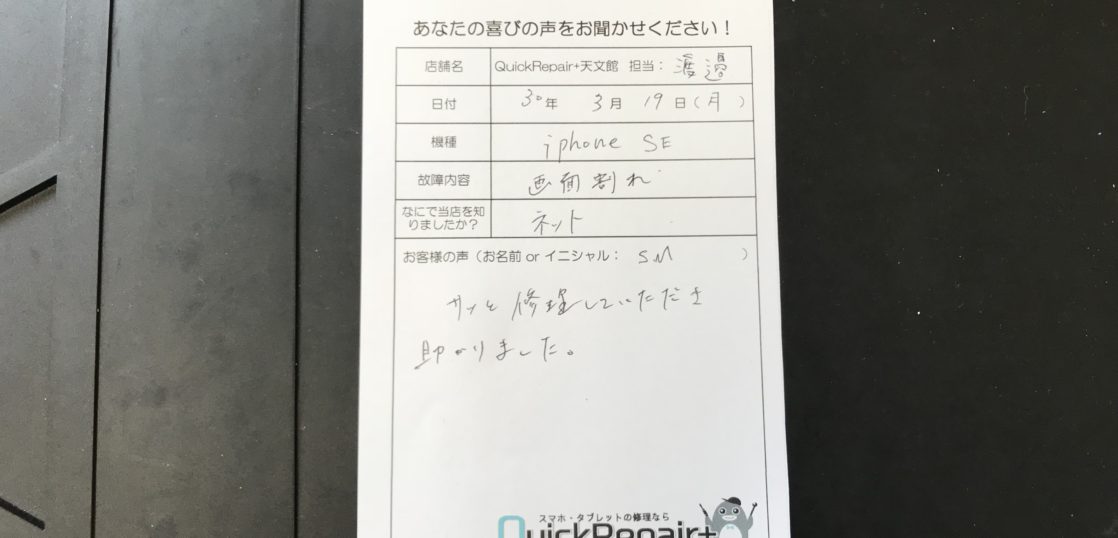 あなたの喜びの声をお聞かせください！
店舗名 QuickRepair+天文館 担当： 渡邉
日付 30年 3月 19日（月）
機種 iphone SE
故障内容 画面割れ
なにで当店を知りましたか？ ネット
お客様の声（お名前 or イニシャル： SM ）
サッと修理していただき
助かりました。
スマホ・タブレットの修理なら
QuickRepair+